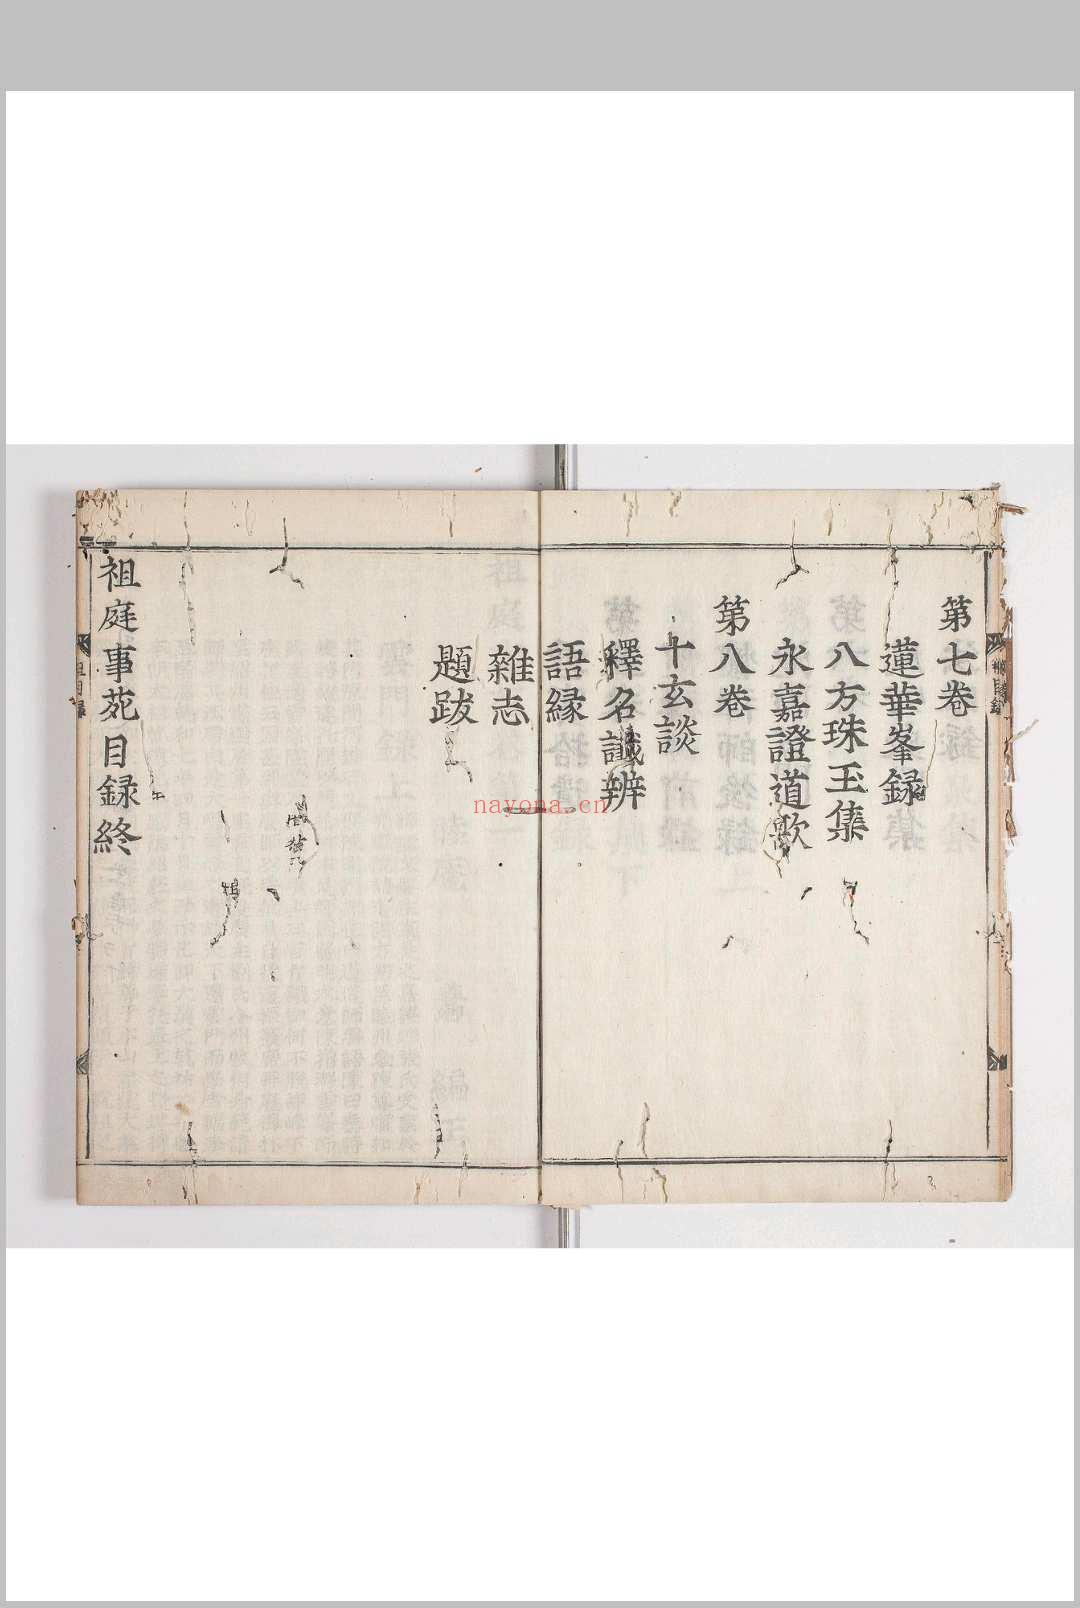 第七卷
蓮華峯録
八方珠玉集
永嘉證道歌
第八卷
十玄談
釋名讖辨
語縁
雜志
題跋
祖庭事苑目録終
nayona.cn